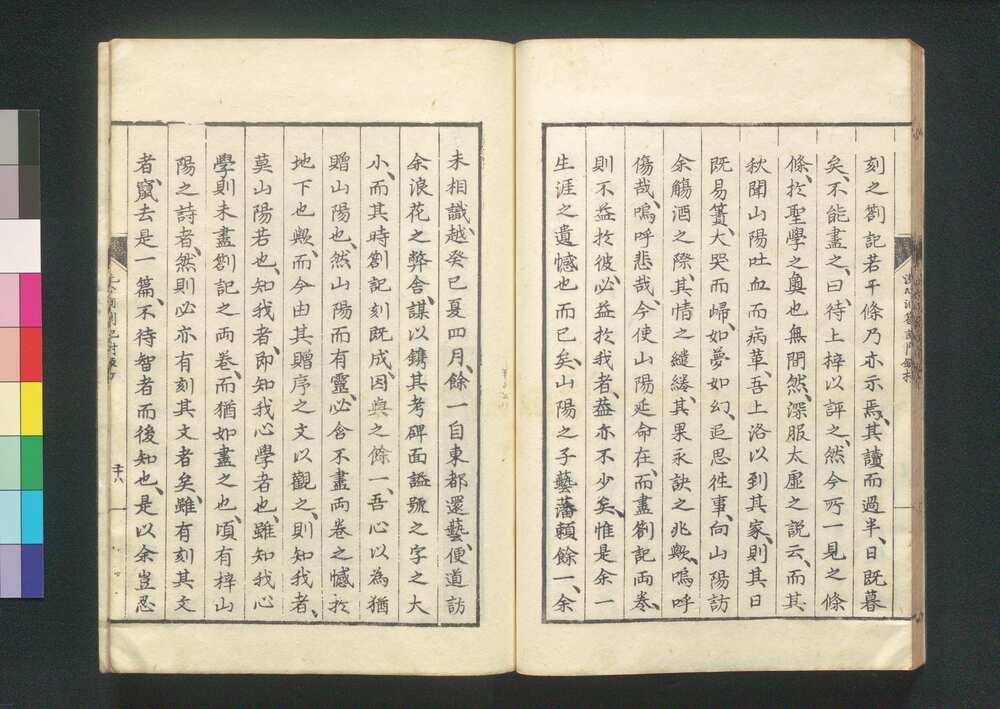 刻之劄記若干條乃亦示焉、其讀而過半、日既暮
矣、不能盡之、曰、待上梓以評之、然今所一見之條
條、於聖學之奧也無間然、深服太虛之說云、而其
秋聞山陽吐血而病革、吾上洛以到其家、則其日
既易簀、大哭而歸、如夢如幻、追思徃事、向山陽訪
余觴酒之際、其情之繾綣、其果永訣之兆歟、嗚呼
傷哉、嗚呼悲哉、今使山陽延命在、而盡劄記両卷、
則不益於彼、必益於我者、葢亦不少矣、惟是余一
生涯之遺憾也而已矣、山陽之子藝藩賴餘一、余
未相識、越癸巳夏四月、餘一自東都還藝、便道訪
余浪花之弊舍、謀以鐫其考碑面謚號之字之大
小、而其時劄記刻既成、因與之餘一、吾心以為猶
贈山陽也、然山陽而有靈、必含不盡両卷之憾於
地下也歟、而今由其贈序之文以觀之、則知我者、
莫山陽若也、知我者、即知我心學者也、雖知我心
學、則未盡劄記之両卷、而猶如盡之也、頃有梓山
陽之詩者、然則必亦有刻其文者矣、雖有刻其文
者、竄去是一篇、不待智者而後知也、是以余豈忍